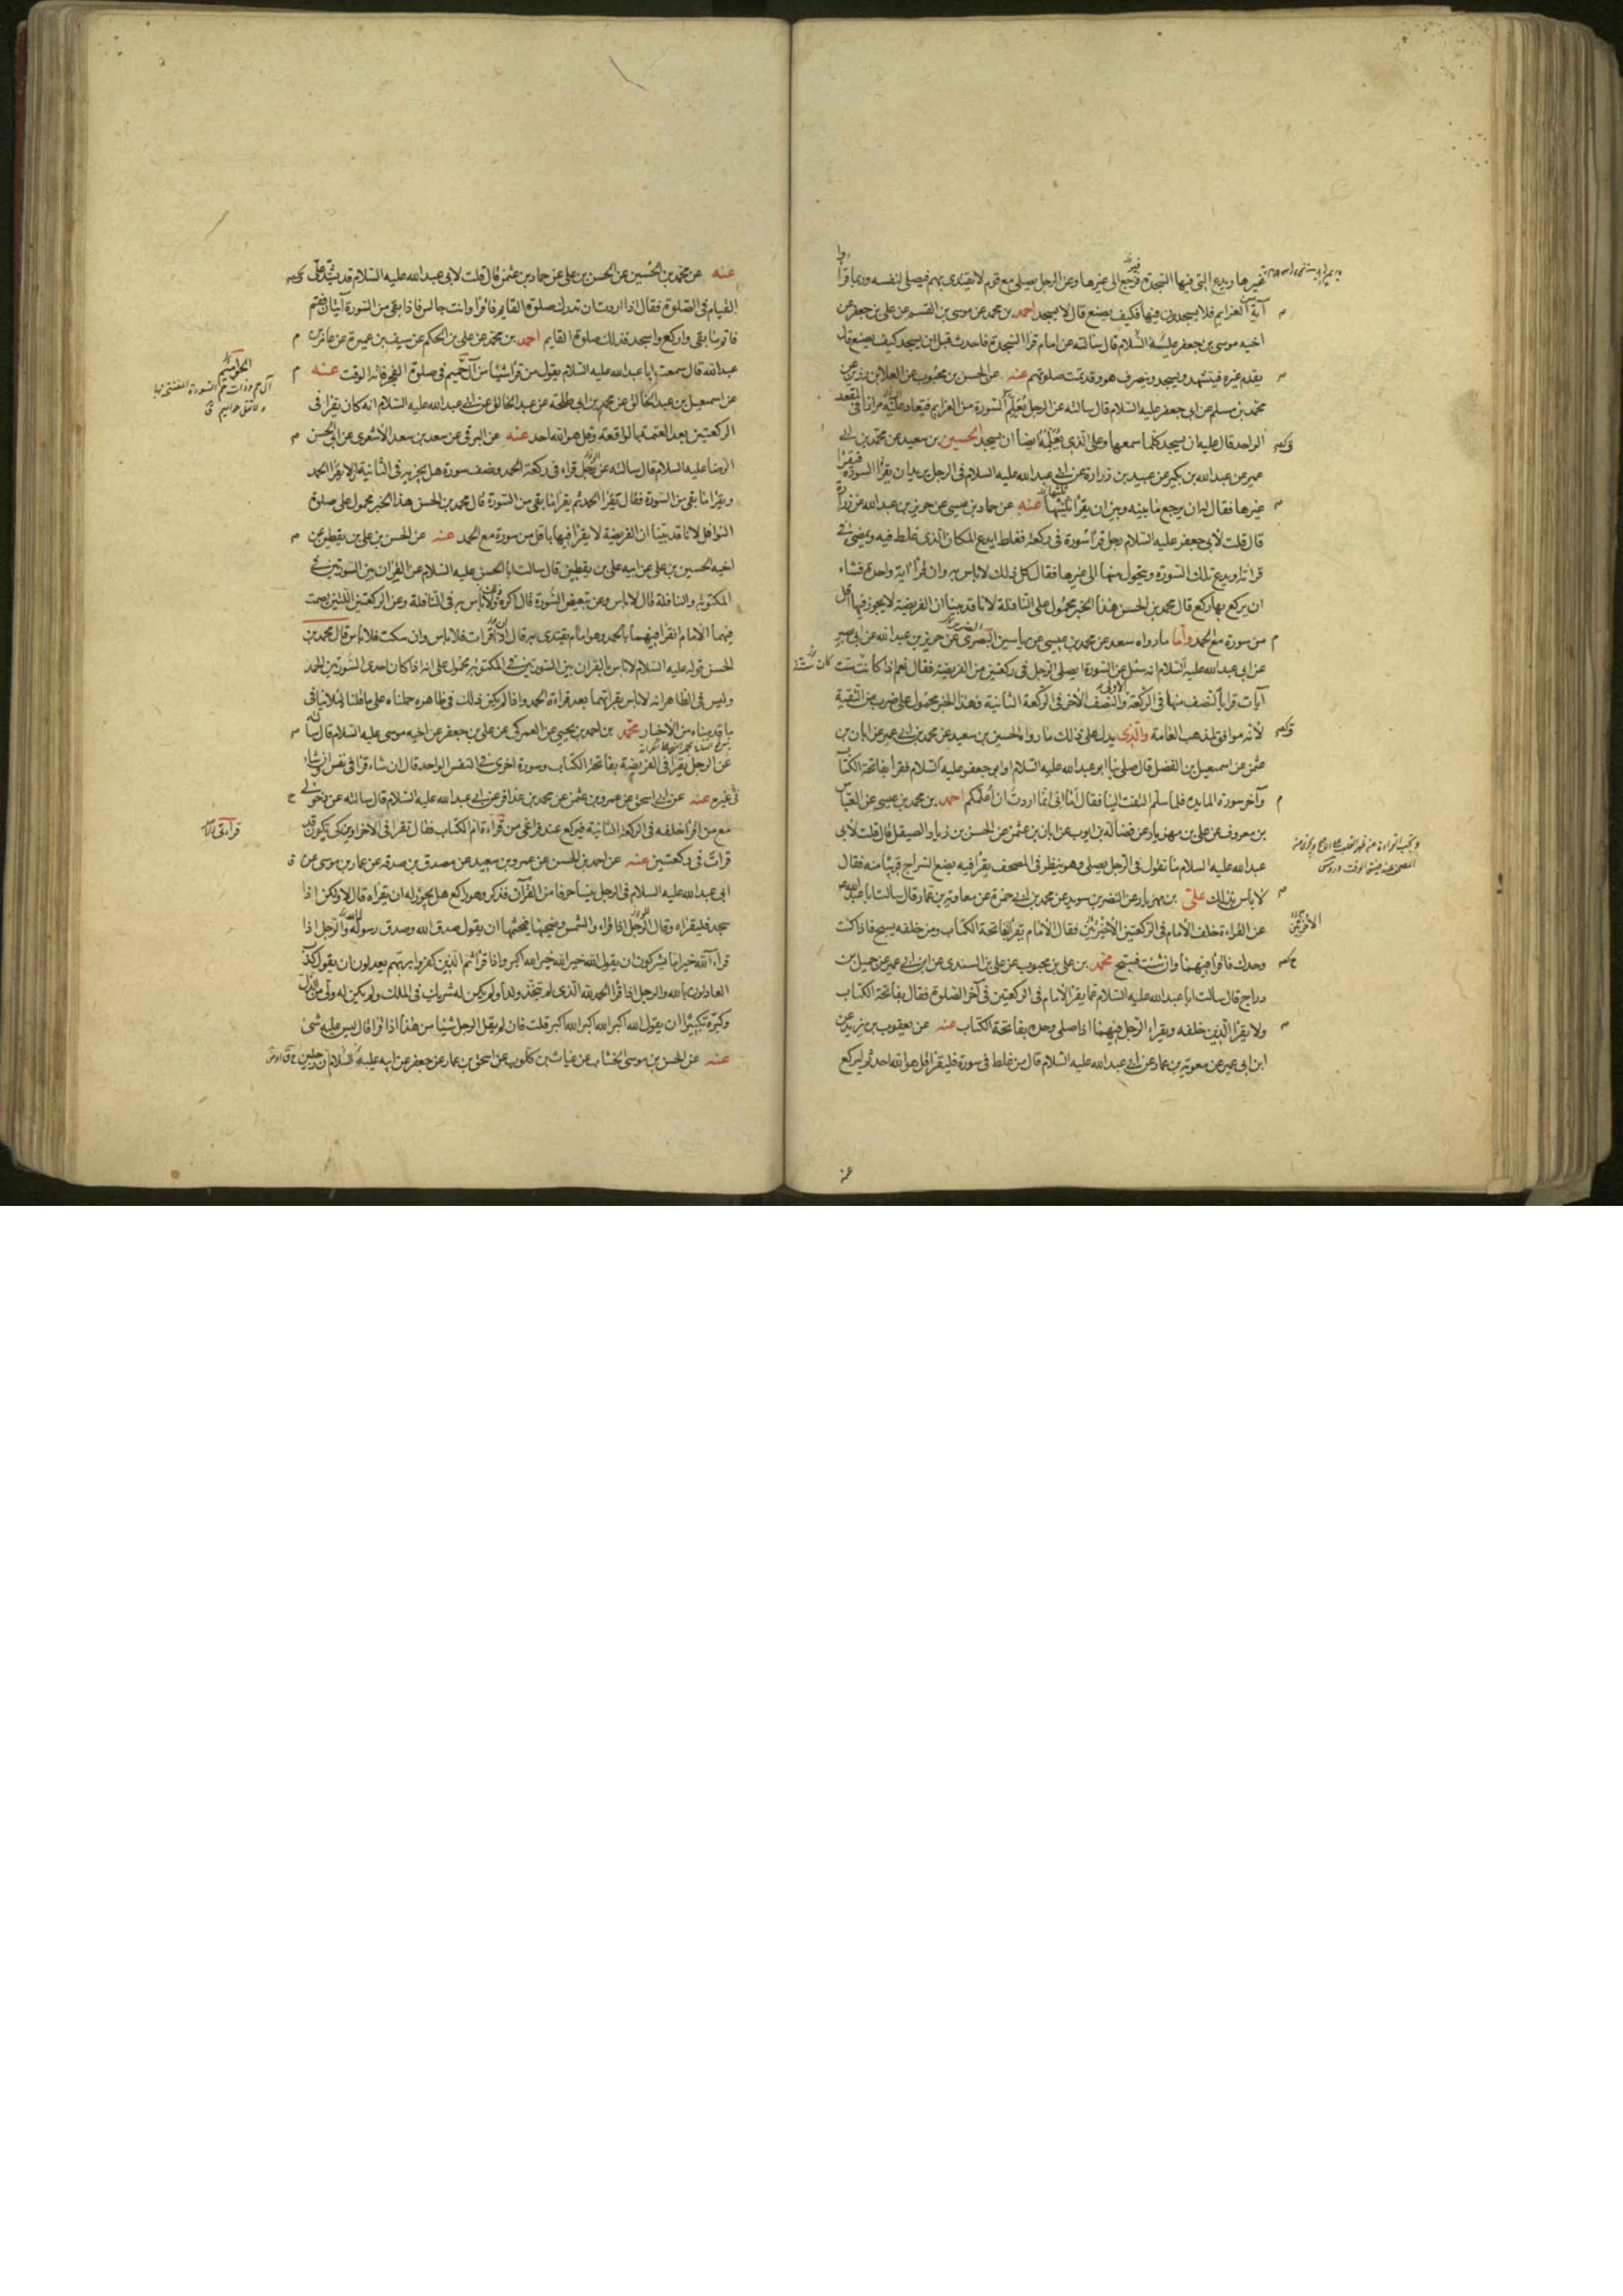 غيرها ويدع التي فيها السجدة فيرجع الى غيرها وعن الرجل يصلي مع قوم لا يقتدى بهم فيصلي لنفسه وربما قرأوا
آية من العزايم فلا يسجدون فيها فكيف يصنع قال لا يسجد احمد بن محمد عن موسى بن القسم عن علي بن جعفر عن
اخيه موسى بن جعفر عليه السلام قال سالته عن امام قرأ السجدة فاحدث قبل ان يسجد كيف يصنع قال
يقدم غيره فيتشهد ويسجد وينصرف هو وقد تمت صلوتهم عنه عن الحسن بن محبوب عن العلا بن رزين عن
محمد بن مسلم عن ابي جعفر عليه السلام قال سالته عن الرجل يعلم السورة من العزايم فيعاد عليه مرارا في المقعد
الواحد قال عليه ان يسجد كلما سمعها وعلى الذي يعلمه ايضا ان يسجد الحسين بن سعيد عن محمد بن ابي
عمير عن عبد الله بن بكير عن عبيد بن زرارة عن ابي عبد الله عليه السلام في الرجل يريد ان يقرأ السورة فيقرأ
غيرها فقال له ان يرجع ما بينه وبين ان يقرأ ثلثيها عنه عن حماد بن عيسى عن حريز بن عبد الله عن زرارة
قال قلت لابي جعفر عليه السلام رجل قرأ سورة في ركعة فغلط ايدع المكان الذي غلط فيه ويمضى في
قراءته او يدع تلك السورة ويتحول منها الى غيرها فقال كل ذلك لا باس به وان قرأ آية واحدة فشاء
ان يركع بها ركع قال محمد بن الحسن هذا الخبر محمول على النافلة لانا قد بينا ان الفريضة لا يجوز فيها اقل
من سورة مع الحمد وأما ما رواه سعد عن محمد بن عيسى عن ياسين البصرى عن حريز بن عبد الله عن ابي بصير
عن ابي عبد الله عليه السلام انه سئل عن السورة ايصلي الرجل في ركعتين من الفريضة فقال نعم اذا كانت ست
آيات قرأ بالنصف منها في الركعة الاولى والنصف الاخر في الركعة الثانية وهذا الخبر محمول على ضرب من التقية
لأنه موافق لمذهب العامة والذى يدل على ذلك ما رواه الحسين بن سعيد عن محمد بن ابي عمير عن ابان بن
عثمن عن اسمعيل بن الفضل قال صلى بنا ابو عبد الله عليه السلام او ابو جعفر عليه السلام فقرأ بفاتحة الكتاب
وآخر سورة المايدة فلما سلم التفت الينا فقال أما انى انما اردت ان اعلمكم احمد بن محمد بن عيسى عن العباس
بن معروف عن علي بن مهزيار عن فضالة بن ايوب عن ابان بن عثمن عن الحسن بن زياد الصيقل قال قلت لأبى
عبد الله عليه السلام ما تقول في الرجل يصلي وهو ينظر في المصحف يقرأ فيه يضع السراج قريبا منه فقال
لا باس بذلك على بن مهزيار عن النضر بن سويد عن محمد بن ابي حمزة عن معاوية بن عمار قال سالت ابا عبد الله ع
عن القراءة خلف الأمام في الركعتين الأخيرتين فقال الأمام يقرأ بفاتحة الكتاب ومن خلفه يسبح فاذا كنت
وحدك فاقرأ فيهما وان شئت فسبح محمد بن علي بن محبوب عن علي بن السندى عن ابن ابي عمير عن جميل بن
دراج قال سالت ابا عبد الله عليه السلام عما يقرأ الأمام في الركعتين في آخر الصلوة فقال بفاتحة الكتاب
ولا يقرأ الذين خلفه ويقراء الرجل فيهما اذا صلى وحده بفاتحة الكتاب عنه عن يعقوب بن يزيد عن
ابن ابي عمير عن معوية بن عمار عن ابي عبد الله عليه السلام قال من غلط في سورة فليقرأ قل هو الله احد ثم ليركع
الأخيرتين
عنه
عنه عن محمد بن الحسين عن الحسن بن علي عن حماد بن عثمن قال قلت لابى عبد الله عليه السلام قد يشتد علي
القيام في الصلوة فقال اذا اردت ان تدرك صلوة القايم فاقرأ وانت جالس فاذا بقى من السورة آيتان فقم
فاتم ما بقى واركع واسجد فذلك صلوة القايم احمد بن محمد عن علي بن الحكم عن سيف بن عميرة عن عامر بن
عبد الله قال سمعت ابا عبد الله عليه السلام يقول من قرأ شيئا من آل حميم في صلوة الفجر فاته الوقت عنه
عن اسمعيل بن عبد الخالق عن محمد بن ابي طلحة عن عبد الخالق عن ابي عبد الله عليه السلام انه كان يقرأ في
الركعتين بعد العتمة بالواقعة وقل هو الله احد عنه عن البرقى عن سعد بن سعد الأشعرى عن ابي الحسن
الرضا عليه السلام قال سالته عن رجل قراء في ركعة الحمد ونصف سورة هل يجزيه في الثانية ان لا يقرأ الحمد
ويقرأ ما بقى من السورة فقال يقرأ الحمد ثم يقرأ ما بقى من السورة قال محمد بن الحسن هذا الخبر محمول على صلوة
النوافل لانا قد بينا ان الفريضة لا يقرأ فيها باقل من سورة مع الحمد عنه عن الحسن بن علي بن يقطين عن
اخيه الحسين بن علي عن ابيه علي بن يقطين قال سالت ابا الحسن عليه السلام عن القران بين السورتين في
المكتوبة والنافلة قال لا باس وعن تبعيض السورة قال اكره ولا باس به في النافلة وعن الركعتين اللتين يصمت
فيهما الأمام اتقرأ فيهما بالحمد وهو امام يقتدى به قال ان قرات فلا باس وان سكت فلا باس قال محمد بن
الحسن قوله عليه السلام لا باس بالقران بين السورتين في المكتوبة محمول على انه اذا كان احدى السورتين الحمد
وليس في الظاهر انه لا باس بقرائتهما بعد قراءة الحمد واذا لم يكن ذلك في ظاهره حملناه على ما قلنا لئلا ينافى
ما قدمناه من الأخبار محمد بن احمد بن يحيى عن العمركى عن علي بن جعفر عن اخيه موسى عليه السلام قال سالته
عن الرجل يقرأ في الفريضة بفاتحة الكتاب وسورة اخرى في النفس الواحد قال ان شاء قرأ في نفس وان شاء
في غيره عنه عن ابي اسحق عن عمرو بن عثمن عن محمد بن عذافر عن ابي عبد الله عليه السلام قال سالته عن دخولي
مع من اقرأ خلفه في الركعة الثانية فيركع عند فراغى من قراءة ام الكتاب فقال تقرأ في الاخراوين كى تكون قد
قرات في ركعتين عنه عن احمد بن الحسن عن عمرو بن سعيد عن مصدق بن صدقه عن عمار بن موسى عن
ابي عبد الله عليه السلام في الرجل ينسا حرفا من القرآن فذكر وهو راكع هل يجوز له ان يقراه قال لا ولكن اذا
سجد فليقراه وقال الرجل اذا قراء والشمس وضحيها فيختمها ان يقول صدق الله وصدق رسوله والرجل اذا
قراء آلله خير اما يشركون ان يقول الله خير الله خير الله اكبر واذا قرأ ثم الذين كفروا بربهم يعدلون ان يقول كذب
العادلون بالله والرجل اذا قرأ الحمد لله الذى لم يتخذ ولدا ولم يكن له شريك في الملك ولم يكن له ولى من الذل
وكبره تكبيرا ان يقول الله اكبر الله اكبر الله اكبر قلت فان لم يقل الرجل شيئا من هذا اذا قرأ قال ليس عليه شئ
عنه عن الحسن بن موسى الخشاب عن غياث بن كلوب عن اسحق بن عمار عن جعفر عن ابيه عليه السلام ان رجلين
الحواميم